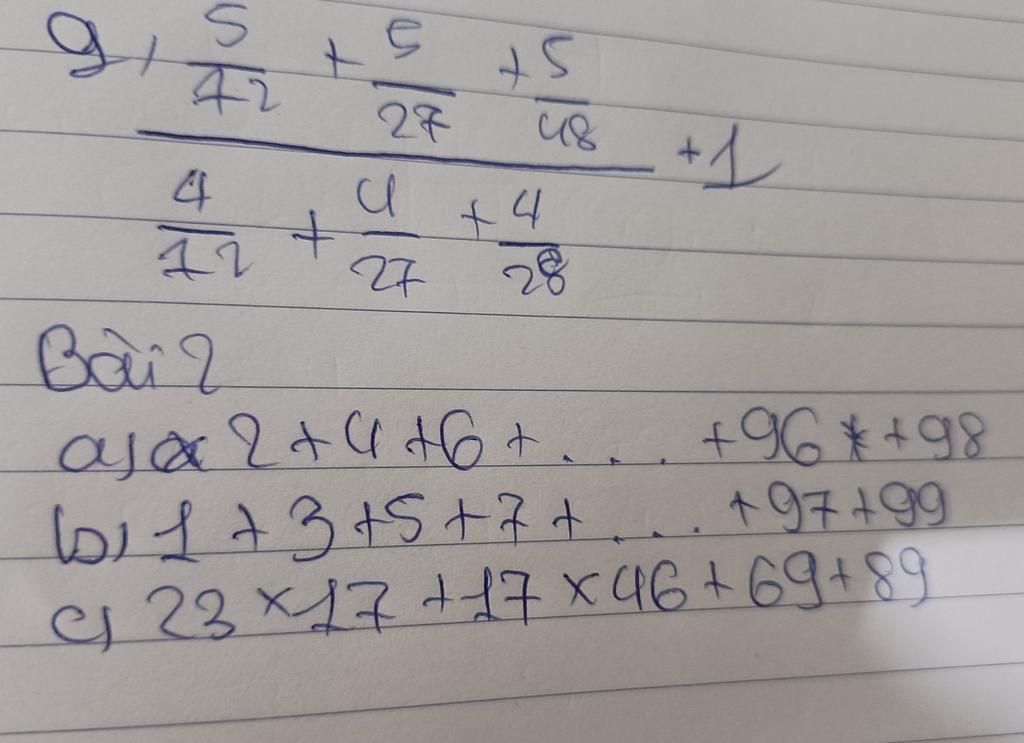 g, 5/12 + 5/27 + 5/48
+1
4/12 + 4/27 + 4/28
Bài 2
a, 2 + 4 + 6 + . . . . + 96 + 98
b, 1 + 3 + 5 + 7 + . . . . + 97 + 99
c, 23 × 17 + 17 × 46 + 69 + 89